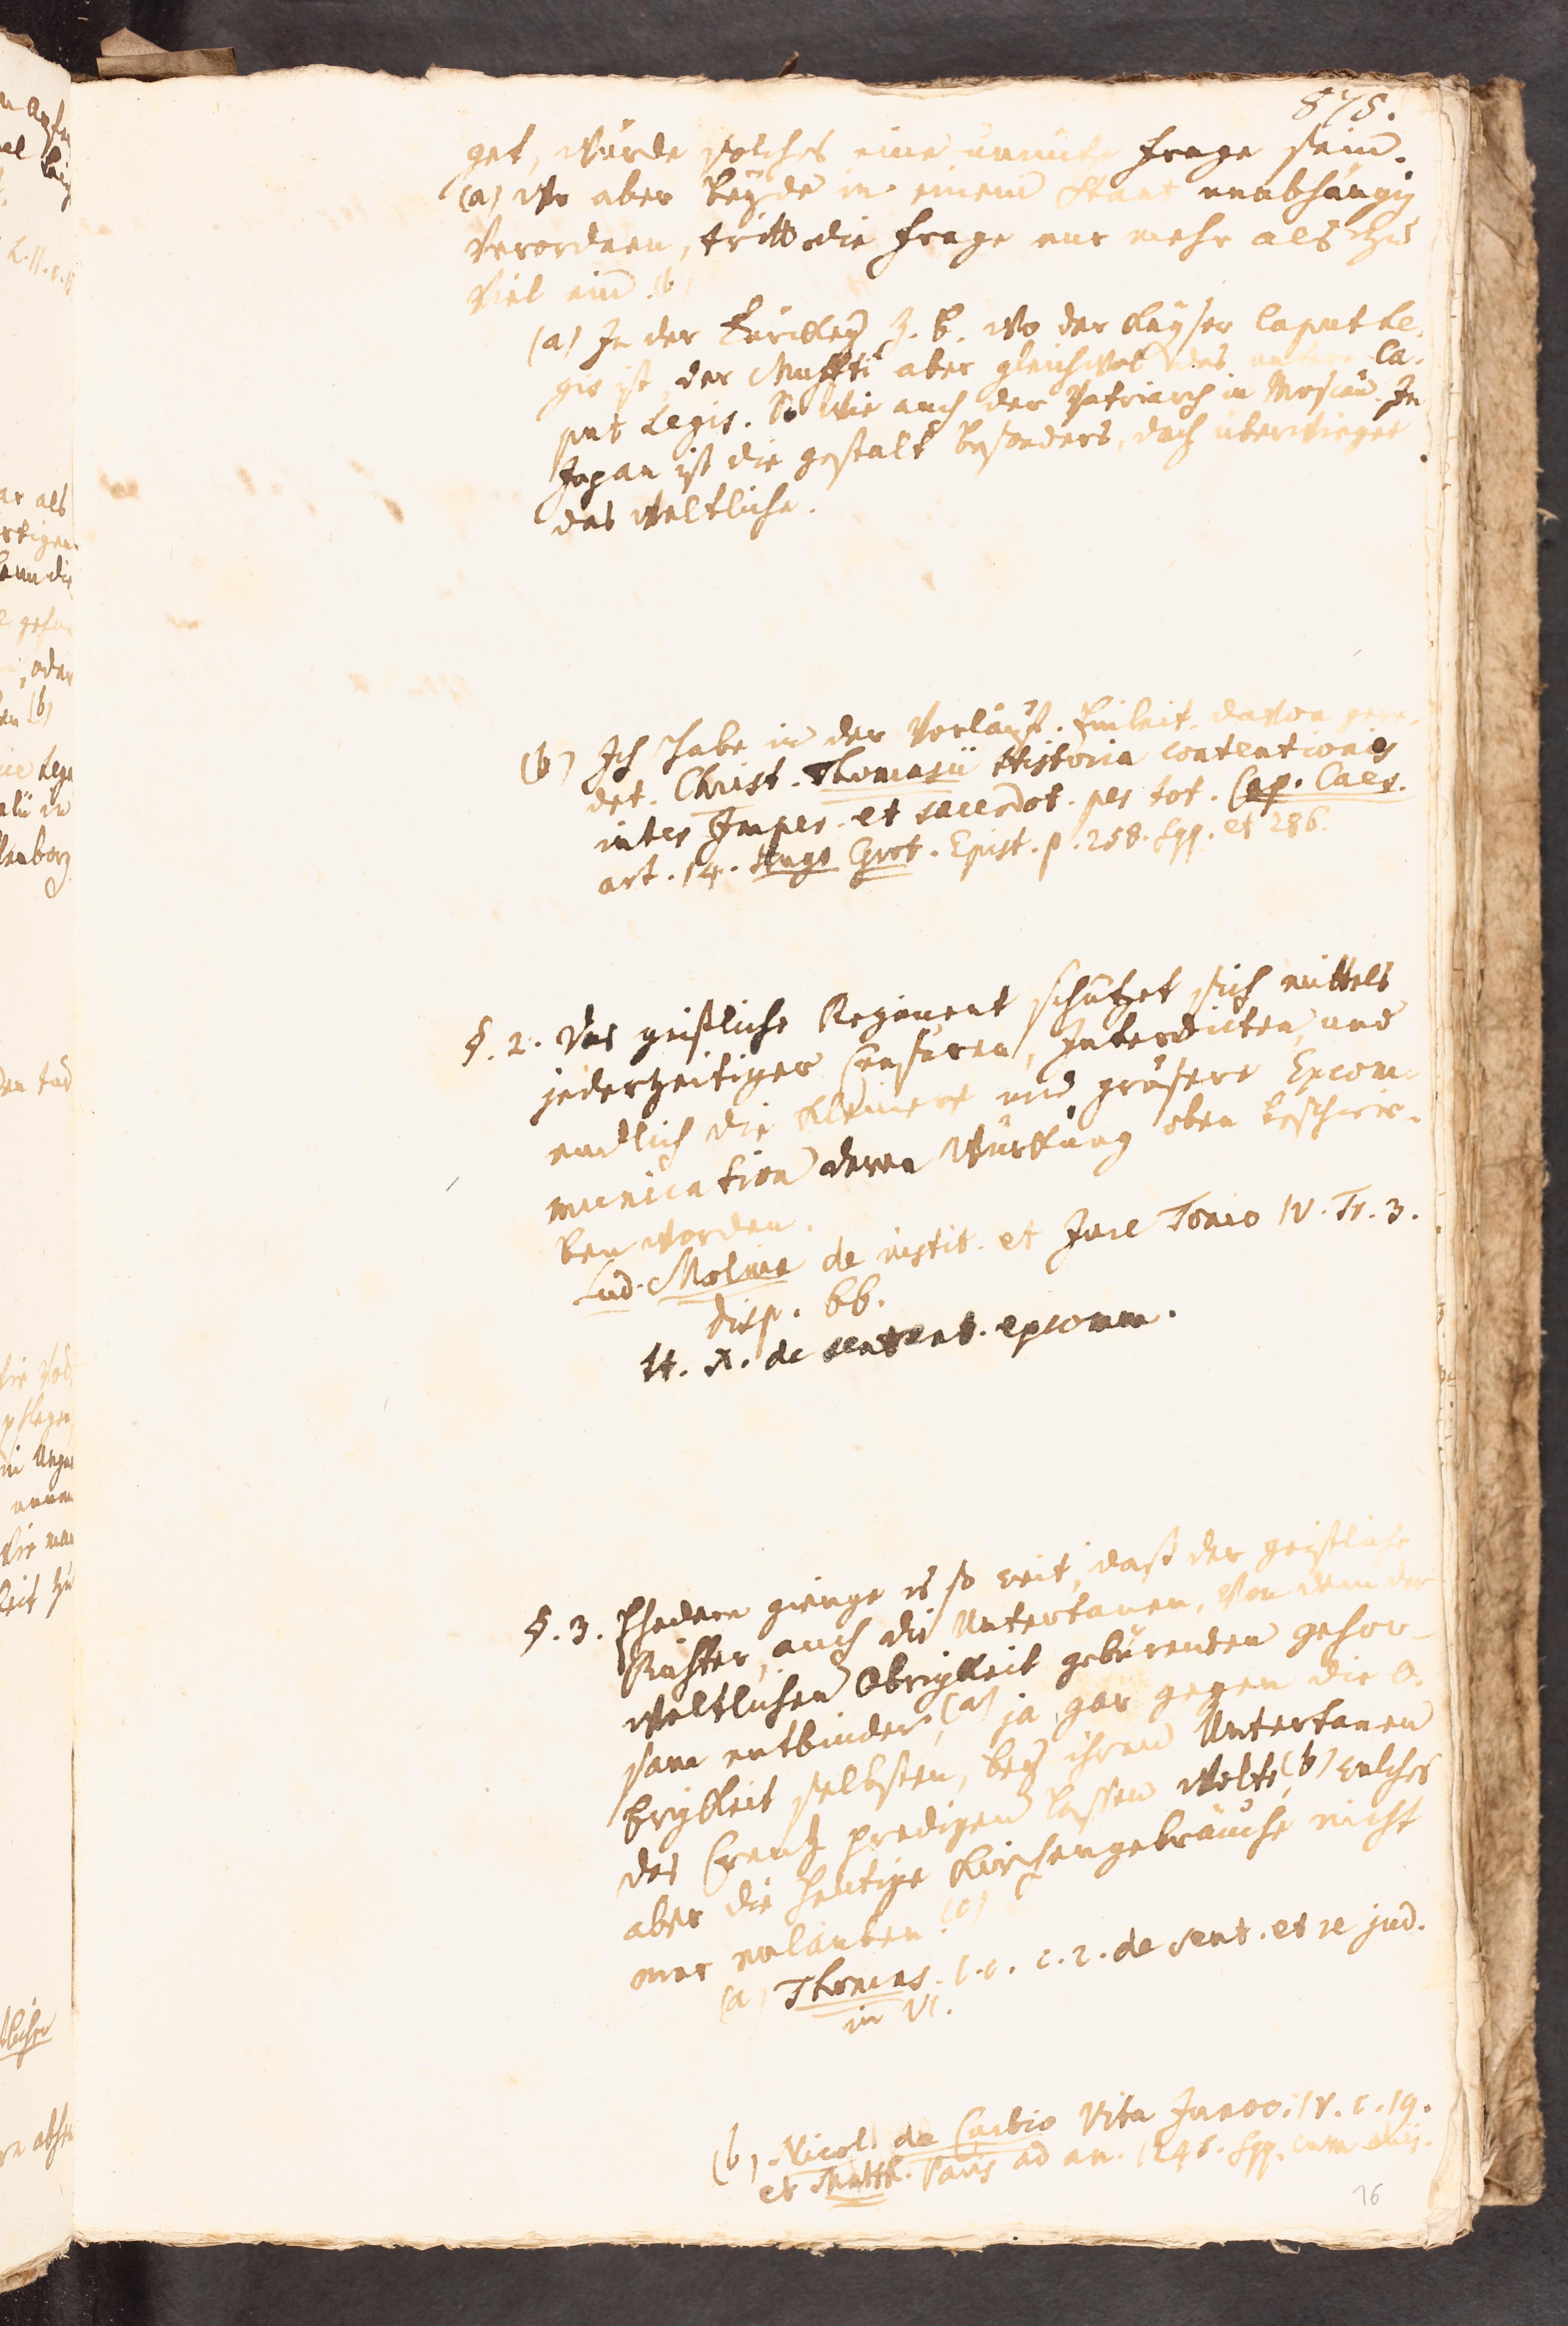 875.
get, würde solches eine unnütze frage sein.
(a) Wo aber beÿde in einem Staat unabhängig
verordnen, tritt die frage nur mehr als zu
viel ein (b)
(a) In der Türckeÿ z. B. wo der Kaÿser Caput Le-
gis ist, der Muffti aber gleichwol das andere Ca-
put Legis. So wie auch der Patriarch in Moscau. In
Japan ist die gestalt besonders, doch überwieget
das weltliche.
(b) Ich habe in der Vorläuf. Einleit. davon gere-
det. Christ. Thomasii Historia contentionis
inter Imper. et sacerdot. per tot. Cap. Caes.
art. 14. Hugo Grot. Epist. p. 258. sqq. et 286.
§. 2. Das geistliche Regiment schützet sich mittels
jederzeitiger Censuren, Interdicten, und
endlich die kleinere und grösere Excom-
munication deren Würckung oben beschrie-
ben worden.
Lud. Molina de instit. et Jure Tomo IV. Tr. 3.
disp. 66.
tt. X. de sentent. excomm.
§. 3. Ehedem gienge es so weit, daß der geistliche
Richter, auch die Untertanen, von dem der
weltlichen Obrigkeit gebürenden gehor-
sam entbinden, (a) ja gar gegen die O-
brigkeit selbsten, beÿ ihren Untertanen
das Creutz predigen lassen wolte, (b) welches
aber die heutige Kirchengebräuche nicht
mer erlauben. (c)
(a) Thomas. l. c. c. 2. de sent. et re jud.
in VI.
(b) Nicol. de Curbio Vita Innoc. IV. c. 19.
et Matth. Paris ad an. 1246. sqq. cum aliis.
76